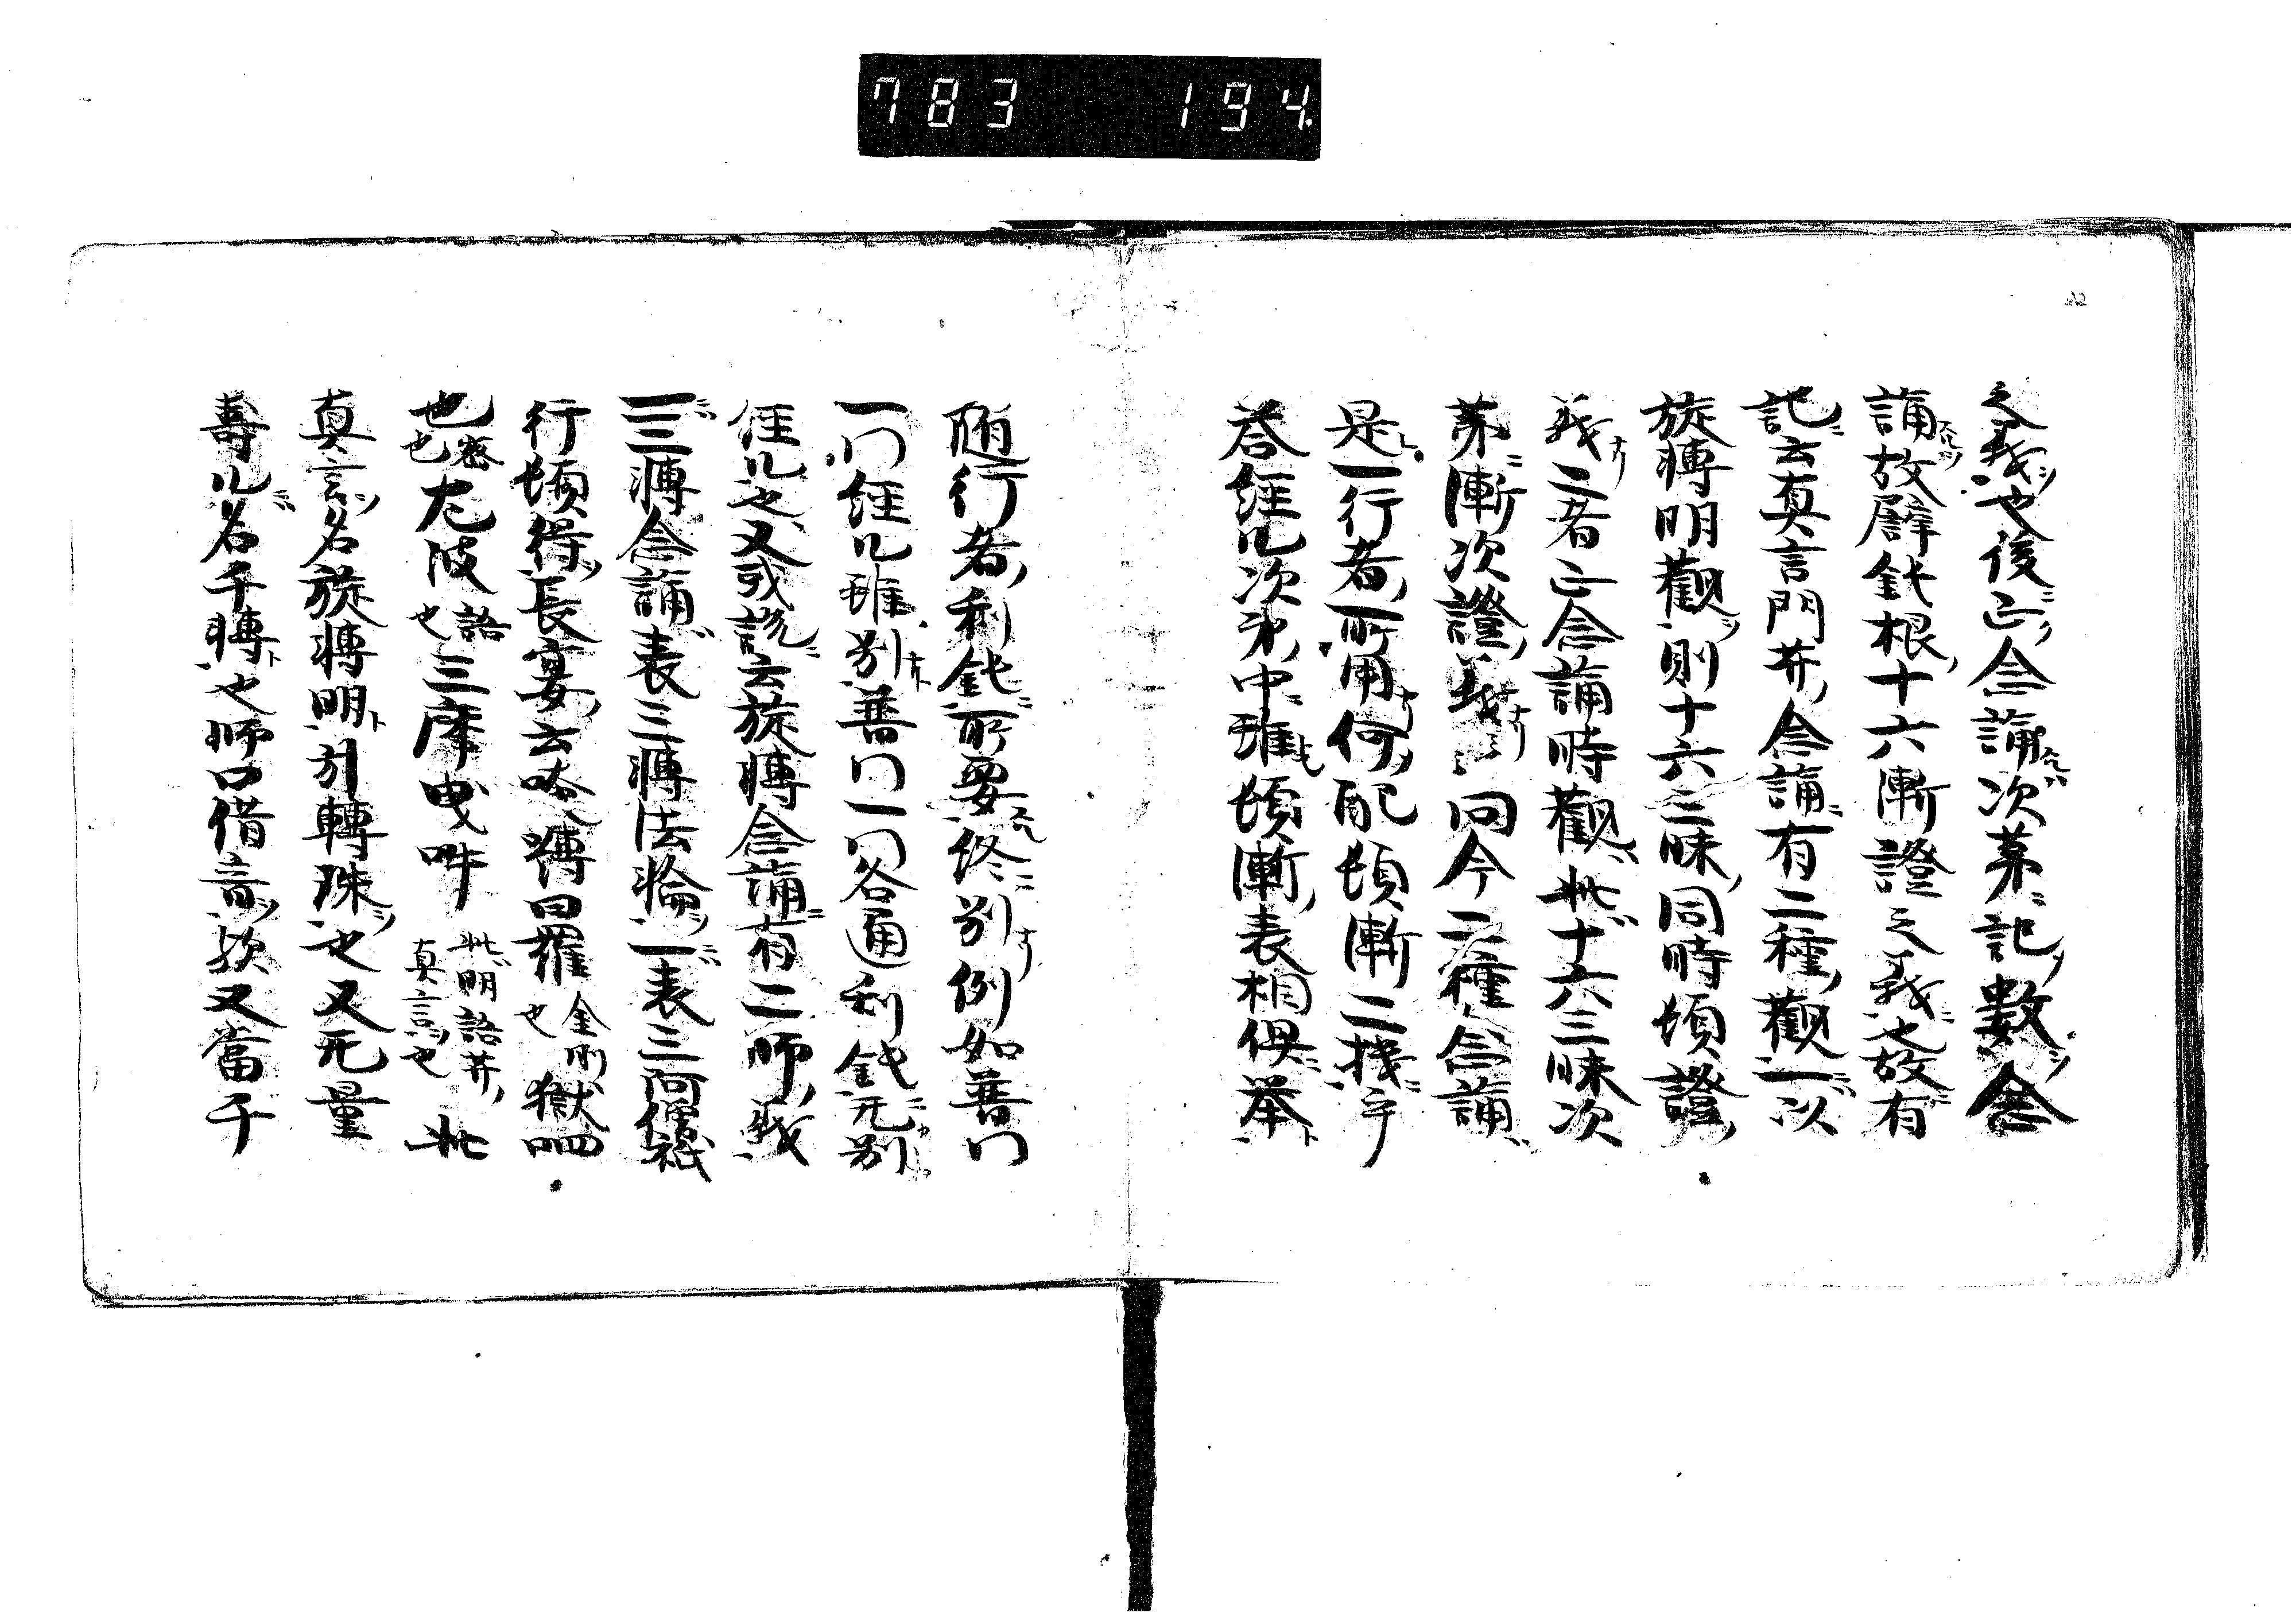 783 194
之義也後正念誦次第記數念
誦故辟鈍根十六漸證之義也故有
記云真言門菩薩念誦有二種觀一以
旋轉明觀則十六三昧同時頓證
義二者正念誦時觀此十六三昧次
第漸次證義云云問今二種念誦
是一行者所用何配頓漸二機乎
答經軌次第中雖頓漸表相俱举
随行者利鈍所要終別例如普門
一門經軌雖別普門一門各通利鈍无別
經軌也又或説云旋轉念誦有二師義
一三轉念誦表三轉法輪一表三阿僧祇
行頓得長宴云 嚩曰羅金剛也獄呬
也密也尤波語也三摩曳吽此明語菩薩真言也此
真言名旋轉明引轉珠也又无量
壽軌名千轉也師口借音欤又當千